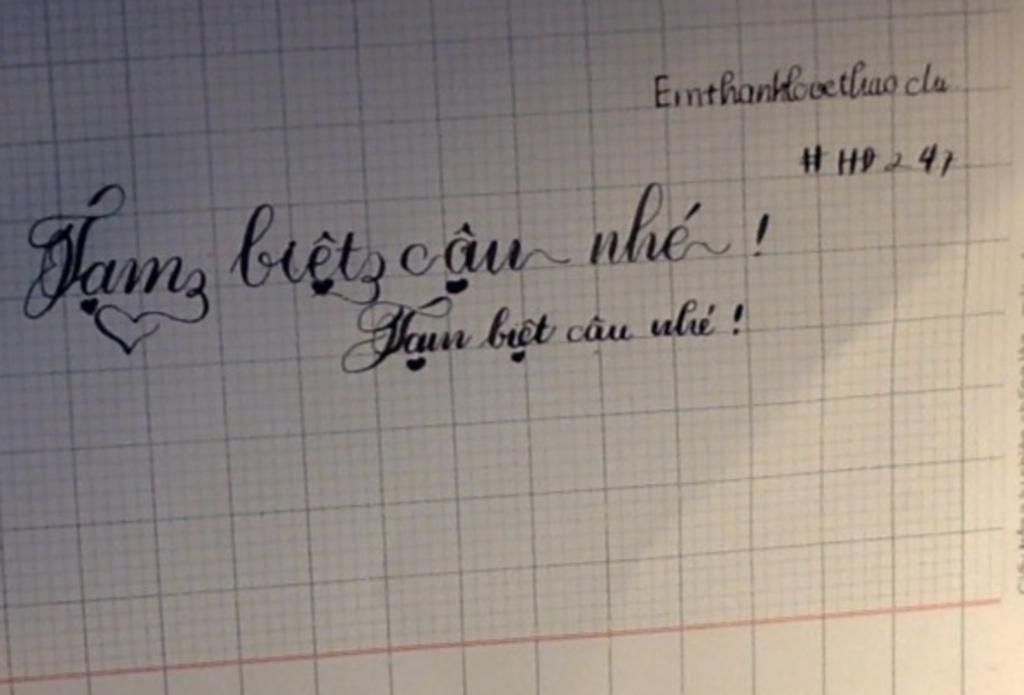 Emthanhlovethao clu
# HD 247
Tạm biệt cậu nhé !
Tạm biệt câu nhé !